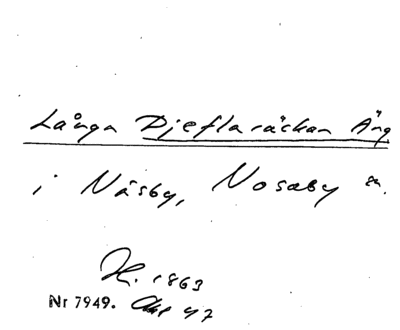 Långa Djeflaräckan Äng
i Näsby, Nosaby sn.
H. 1863
Nr 7949. 47